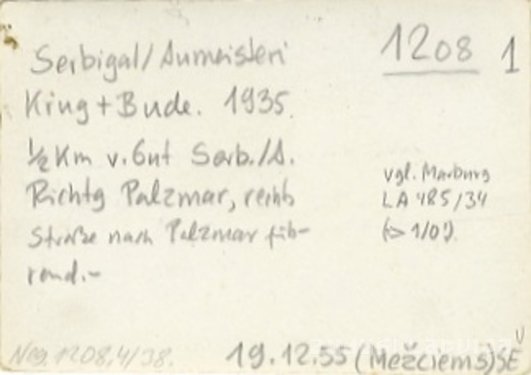 Serbigal/Aumeisteri
1208 1
Krug + Bude. 1935.
1/2 Km v. Gut Serb./A.
Richtg Palzmar, rechts
Straße nach Palzmar füh-
rend.-
vgl. Marburg
LA 485/34
Neg. 1208,4/38.
19.12.55 (Mežciems) SE